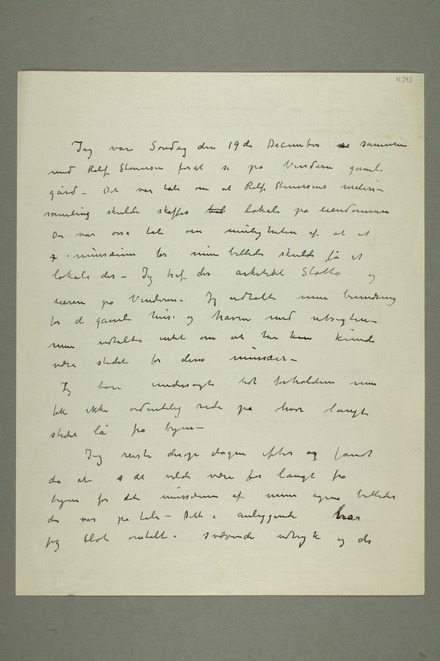 N 393
Jeg var Søndag den 19de December sammen
med Rolf Stenersen forat se på Vinderen gamle
gård – Det var tale om at Rolf Stenersens maleri-
samling skulde skaffes lokale på eiendommen
Der var også tale om muligheten af at et
museum for mine billeder skulde få et
lokale der – Jeg traf der arkitekt og
eieren på Vinderen. Jeg udtalte min beundring
for de gamle huse og haven med udsigten –
men udtalte intet om at her kunde
være stedet for disse museer –
Jeg bare undersøgte lidt forholdene men
fik ikke ordentlig rede på hvor langt
stedet lå fra byen –
Jeg reiste derfor dagen efter og fandt
da at det vilde være for langt fra
byen for det museum af mine egne billeder
der var på tale – Dette anliggende har
jeg blot omtalt i svævende udtryk og da